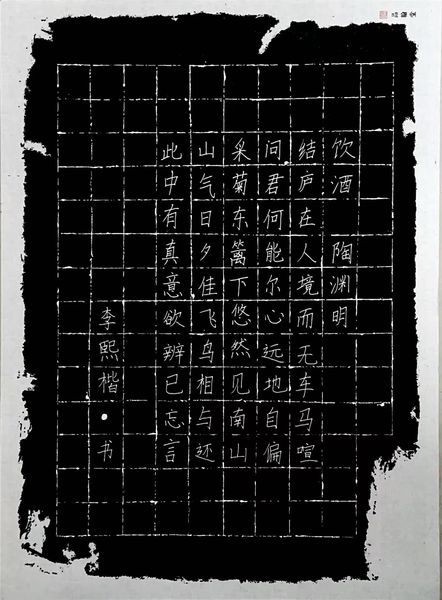 饮酒 陶渊明
结庐在人境而无车马喧
问君何能尔心远地自偏
采菊东篱下悠然见南山
山气日夕佳飞鸟相与还
此中有真意欲辨已忘言
李熙楷·书